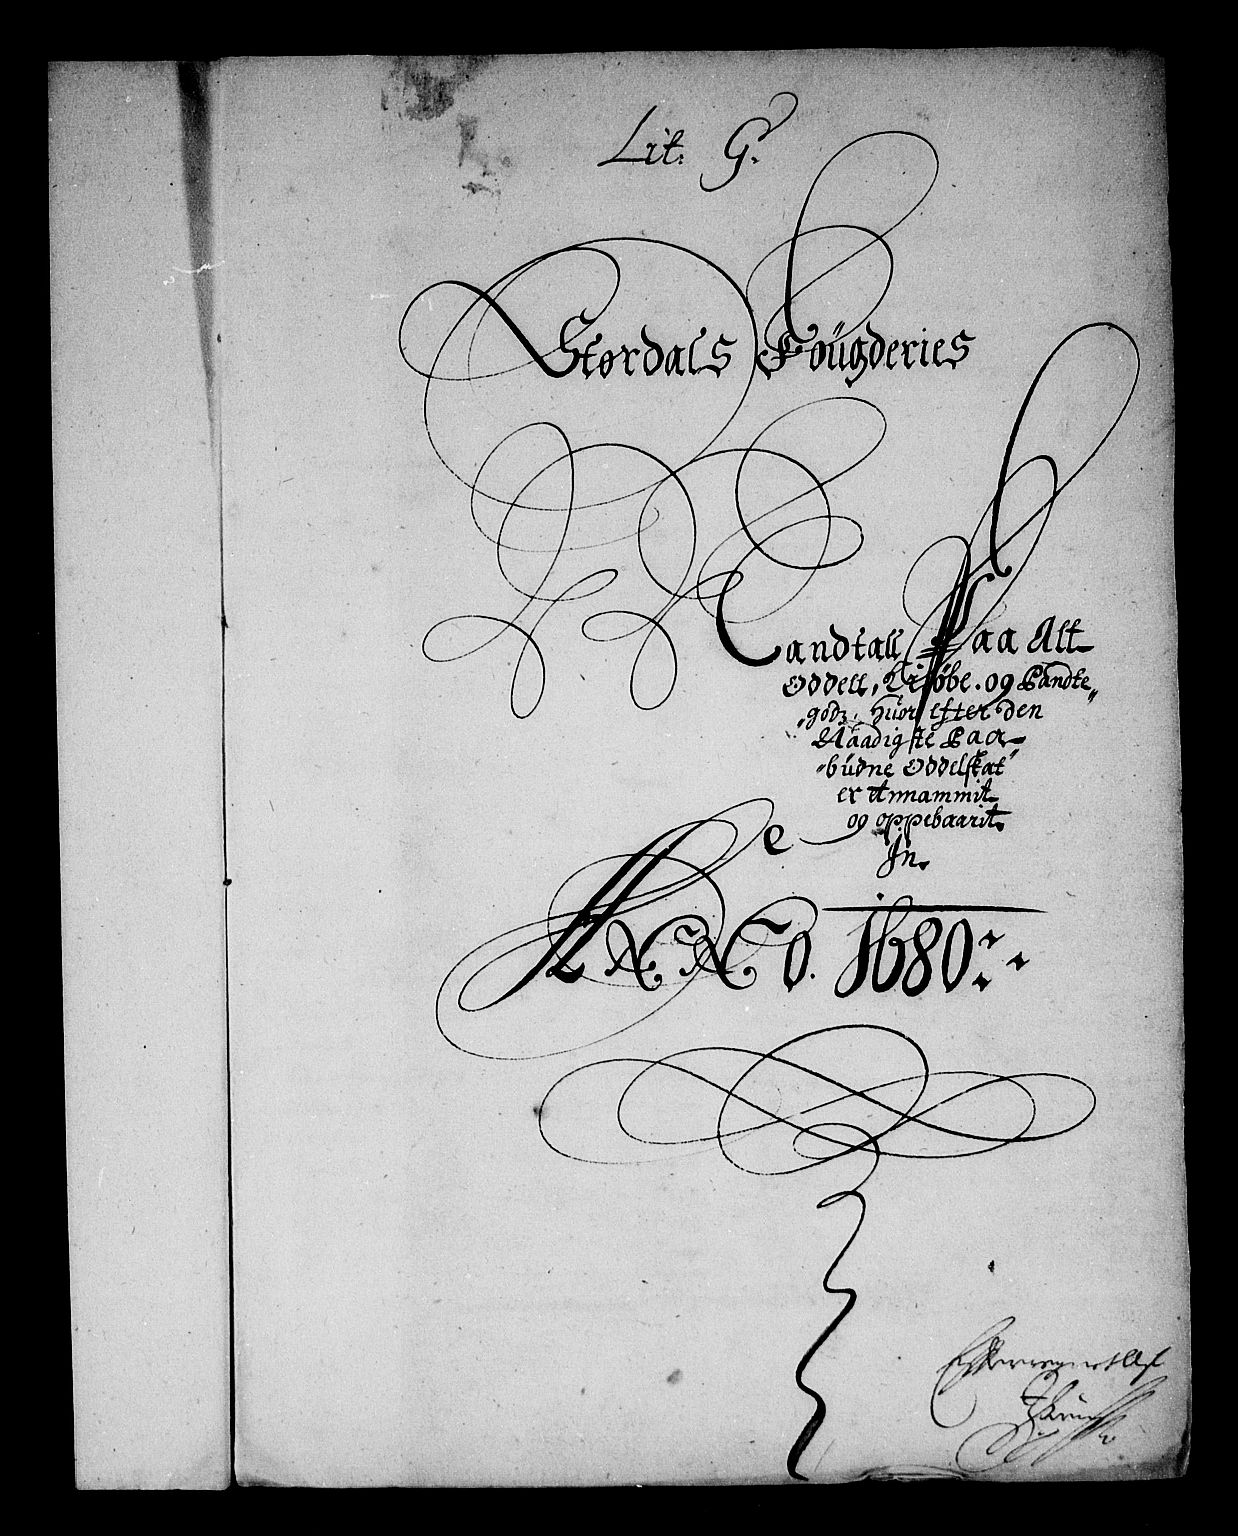 Lit. G.
Størdals Foügderies
Landtall Paa Alt
Oddell, Kiøbe. og Pandte
godz, Hüor efter den
Naadigste Paa
büdne Oddelskat
er Annammit
og oppebaarit
In.
ANNO. 1680